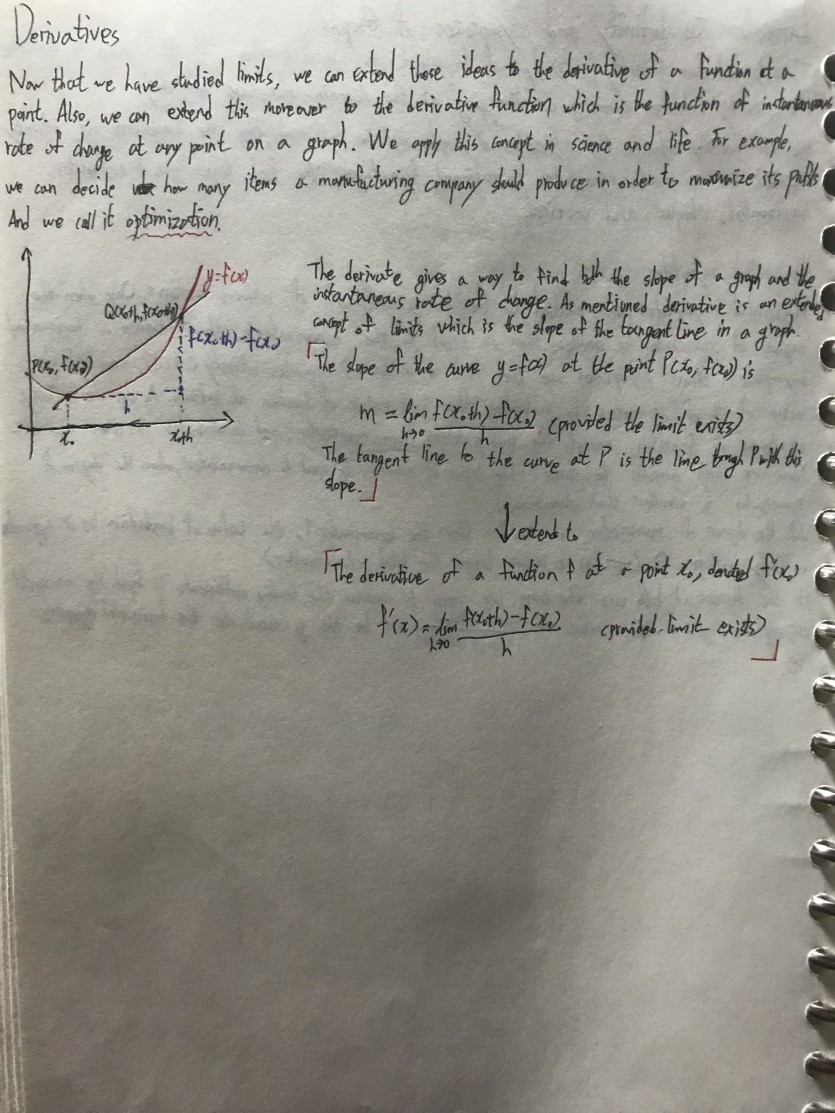 Derivatives
Now that we have studied limits, we can extend these ideas to the derivative of a function at a
point. Also, we can extend this moreover to the derivative function which is the function of instantaneous
rate of change at any point on a graph. We apply this concept in science and life. For example,
we can decide how many items a manufacturing company should produce in order to maximize its profits
And we call it optimization.
y=f(x)
Q(x₀+h, f(x₀+h))
f(x₀+h)-f(x₀)
P(x₀, f(x₀))
h
x₀
x₀+h
The derivate gives a way to find both the slope of a graph and the
instantaneous rate of change. As mentioned derivative is an extended
concept of limits which is the slope of the tangent line in a graph.
「The slope of the curve y=f(x) at the point P(x₀, f(x₀)) is
m = lim h→0 f(x₀+h)-f(x₀) / h (provided the limit exists)
The tangent line to the curve at P is the line trough P with this
slope.」
↓ extends to
「The derivative of a function f at a point x₀, denoted f'(x₀)
f'(x) = lim h→0 f(x₀+h)-f(x₀) / h (provided limit exists)」